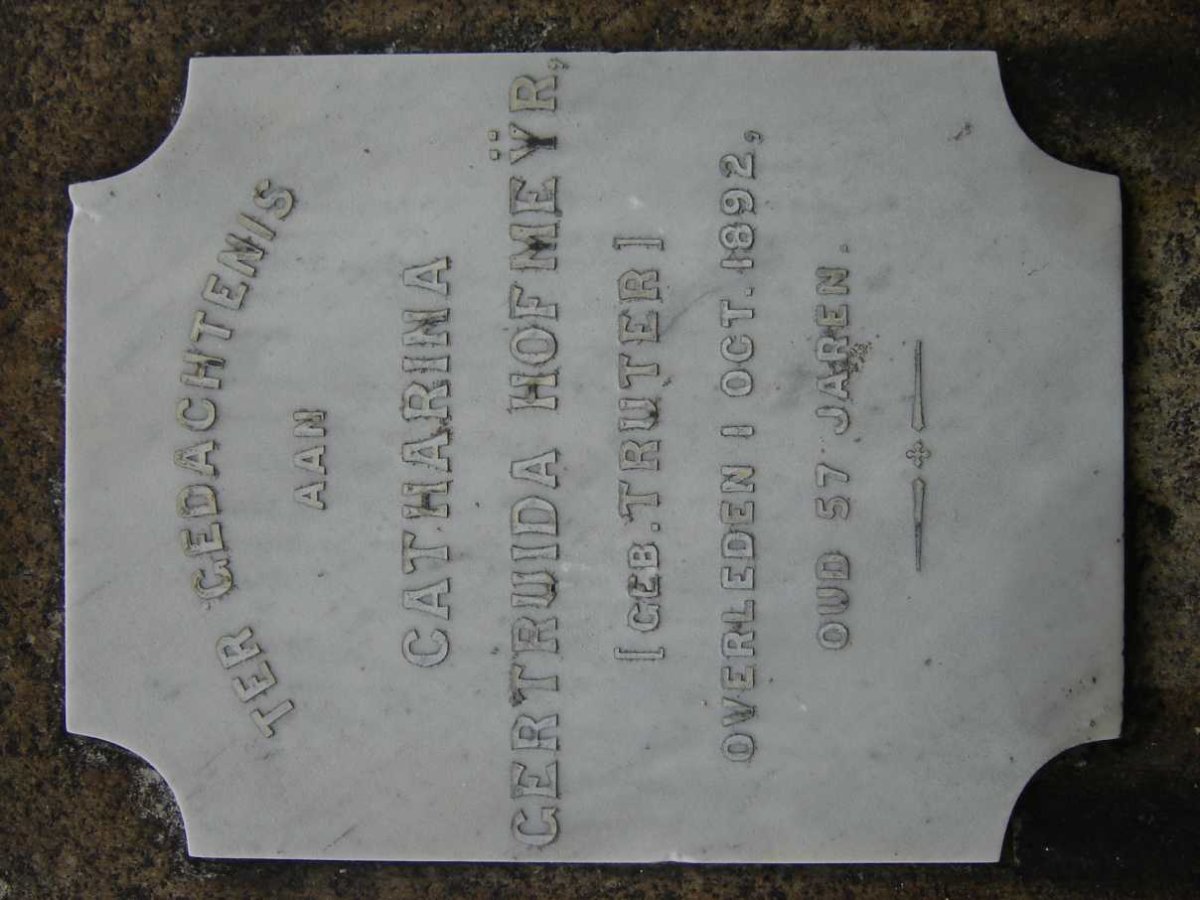 TER GEDACHTENIS
AAN
CATHARINA
GERTRUIDA HOFMEŸR,
[GEB. TRUTER]
OVERLEDEN 1 OCT. 1892,
OUD 57 JAREN.